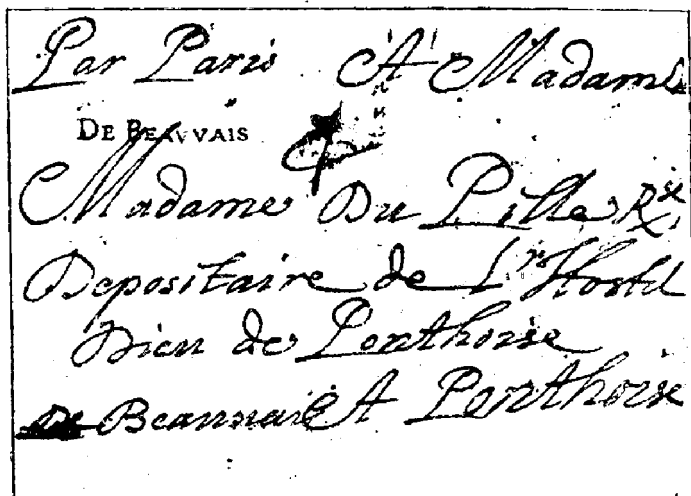 Par Paris A Madame
DE BEAVVAIS
Madame Du Pille R.se
Depositaire de L'Hostel
Dieu de Ponthoise
De Beauvais A Ponthoise